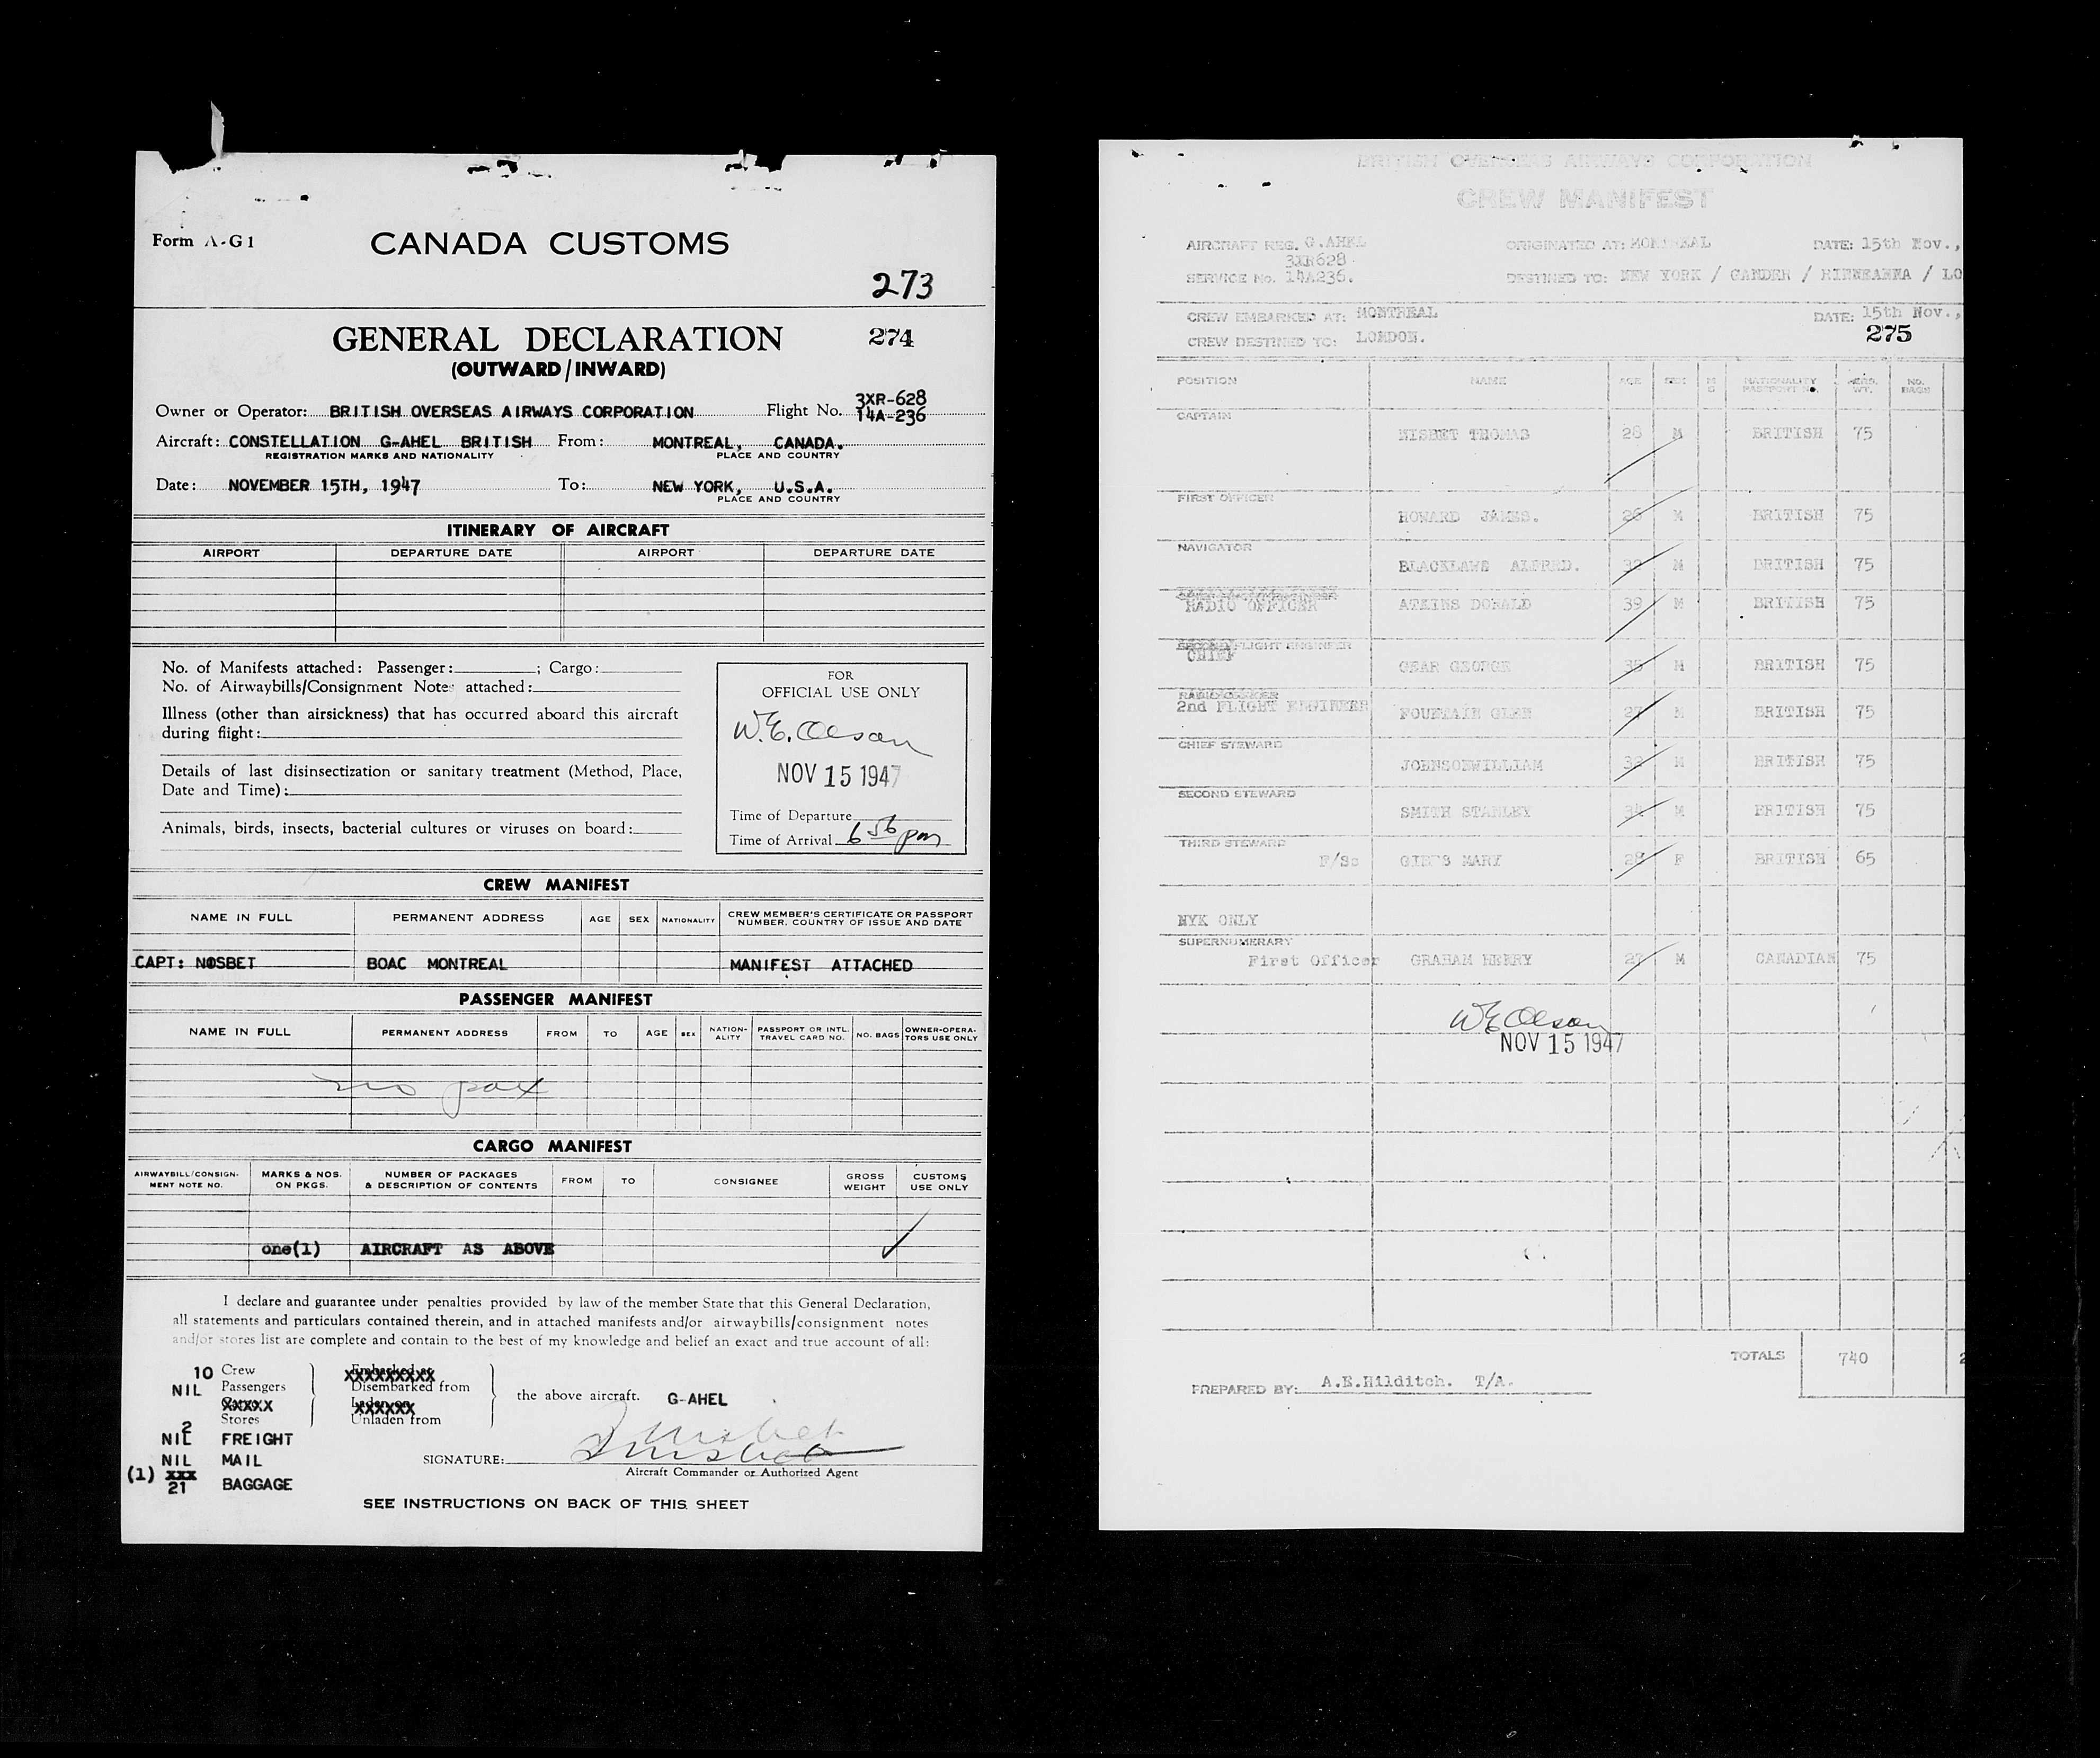 Form A-G1
CANADA CUSTOMS
273
GENERAL DECLARATION
274
(OUTWARD/INWARD)
Owner or Operator: BRITISH OVERSEAS AIRWAYS CORPORATION Flight No. 3XR-628
14A-236
Aircraft: CONSTELLATION G-AHEL BRITISH From: MONTREAL, CANADA.
REGISTRATION MARKS AND NATIONALITY PLACE AND COUNTRY
Date: NOVEMBER 15TH, 1947 To: NEW YORK, U.S.A.
PLACE AND COUNTRY
ITINERARY OF AIRCRAFT
AIRPORT DEPARTURE DATE AIRPORT DEPARTURE DATE
No. of Manifests attached: Passenger: ; Cargo:
No. of Airwaybills/Consignment Notes attached:
Illness (other than airsickness) that has occurred aboard this aircraft
during flight:
Details of last disinsectization or sanitary treatment (Method, Place,
Date and Time):
Animals, birds, insects, bacterial cultures or viruses on board:
FOR
OFFICIAL USE ONLY
W.E. Olson
NOV 15 1947
Time of Departure
Time of Arrival 6 56 pm
CREW MANIFEST
NAME IN FULL PERMANENT ADDRESS AGE SEX NATIONALITY CREW MEMBER'S CERTIFICATE OR PASSPORT
NUMBER, COUNTRY OF ISSUE AND DATE
CAPT: NOSBET BOAC MONTREAL MANIFEST ATTACHED
PASSENGER MANIFEST
NAME IN FULL PERMANENT ADDRESS FROM TO AGE SEX NATION-
ALITY PASSPORT OR INTL.
TRAVEL CARD NO. NO. BAGS OWNER-OPERA-
TORS USE ONLY
no pax
CARGO MANIFEST
AIRWAYBILL/CONSIGN-
MENT NOTE NO. MARKS & NOS.
ON PKGS. NUMBER OF PACKAGES
& DESCRIPTION OF CONTENTS FROM TO CONSIGNEE GROSS
WEIGHT CUSTOMS
USE ONLY
one(1) AIRCRAFT AS ABOVE
I declare and guarantee under penalties provided by law of the member State that this General Declaration,
all statements and particulars contained therein, and in attached manifests and/or airwaybills/consignment notes
and/or stores list are complete and contain to the best of my knowledge and belief an exact and true account of all:
10 Crew
NIL Passengers Disembarked from the above aircraft. G-AHEL
Stores Unladen from
2
NIL FREIGHT
NIL MAIL
(1) xxx
21 BAGGAGE
SIGNATURE: T Nisbet
Aircraft Commander or Authorized Agent
SEE INSTRUCTIONS ON BACK OF THIS SHEET
BRITISH OVERSEAS AIRWAYS CORPORATION
CREW MANIFEST
AIRCRAFT REG. G.AHEL ORIGINATED AT: MONTREAL DATE: 15th Nov.,
3XR628
SERVICE No. 14A236. DESTINED TO: NEW YORK / GANDER / RINNEANNA / LO
CREW EMBARKED AT: MONTREAL DATE: 15th Nov.,
275
CREW DESTINED TO: LONDON.
POSITION NAME AGE SEX NATIONALITY
PASSPORT No. PERS.
WT. NO.
BAGS
CAPTAIN
NISBET THOMAS 28 M BRITISH 75
FIRST OFFICER
HOWARD JAMES. 26 M BRITISH 75
NAVIGATOR
BLACKLAWS ALFRED. M BRITISH 75
RADIO OFFICER ATKINS DONALD 39 M BRITISH 75
SECOND FLIGHT ENGINEER
CHIEF
GEAR GEORGE M BRITISH 75
RADIO OFFICER
2nd FLIGHT ENGINEER FOUNTAIN GLEN 27 M BRITISH 75
CHIEF STEWARD
JOHNSONWILLIAM M BRITISH 75
SECOND STEWARD
SMITH STANLEY M BRITISH 75
THIRD STEWARD
F/Ss GIBBS MARY 28 F BRITISH 65
NYK ONLY
SUPERNUMERARY
First Officer GRAHAM HENRY 27 M CANADIAN 75
W E Olson
NOV 15 1947
TOTALS 740 2
PREPARED BY: A.E.Hilditch. T/A.